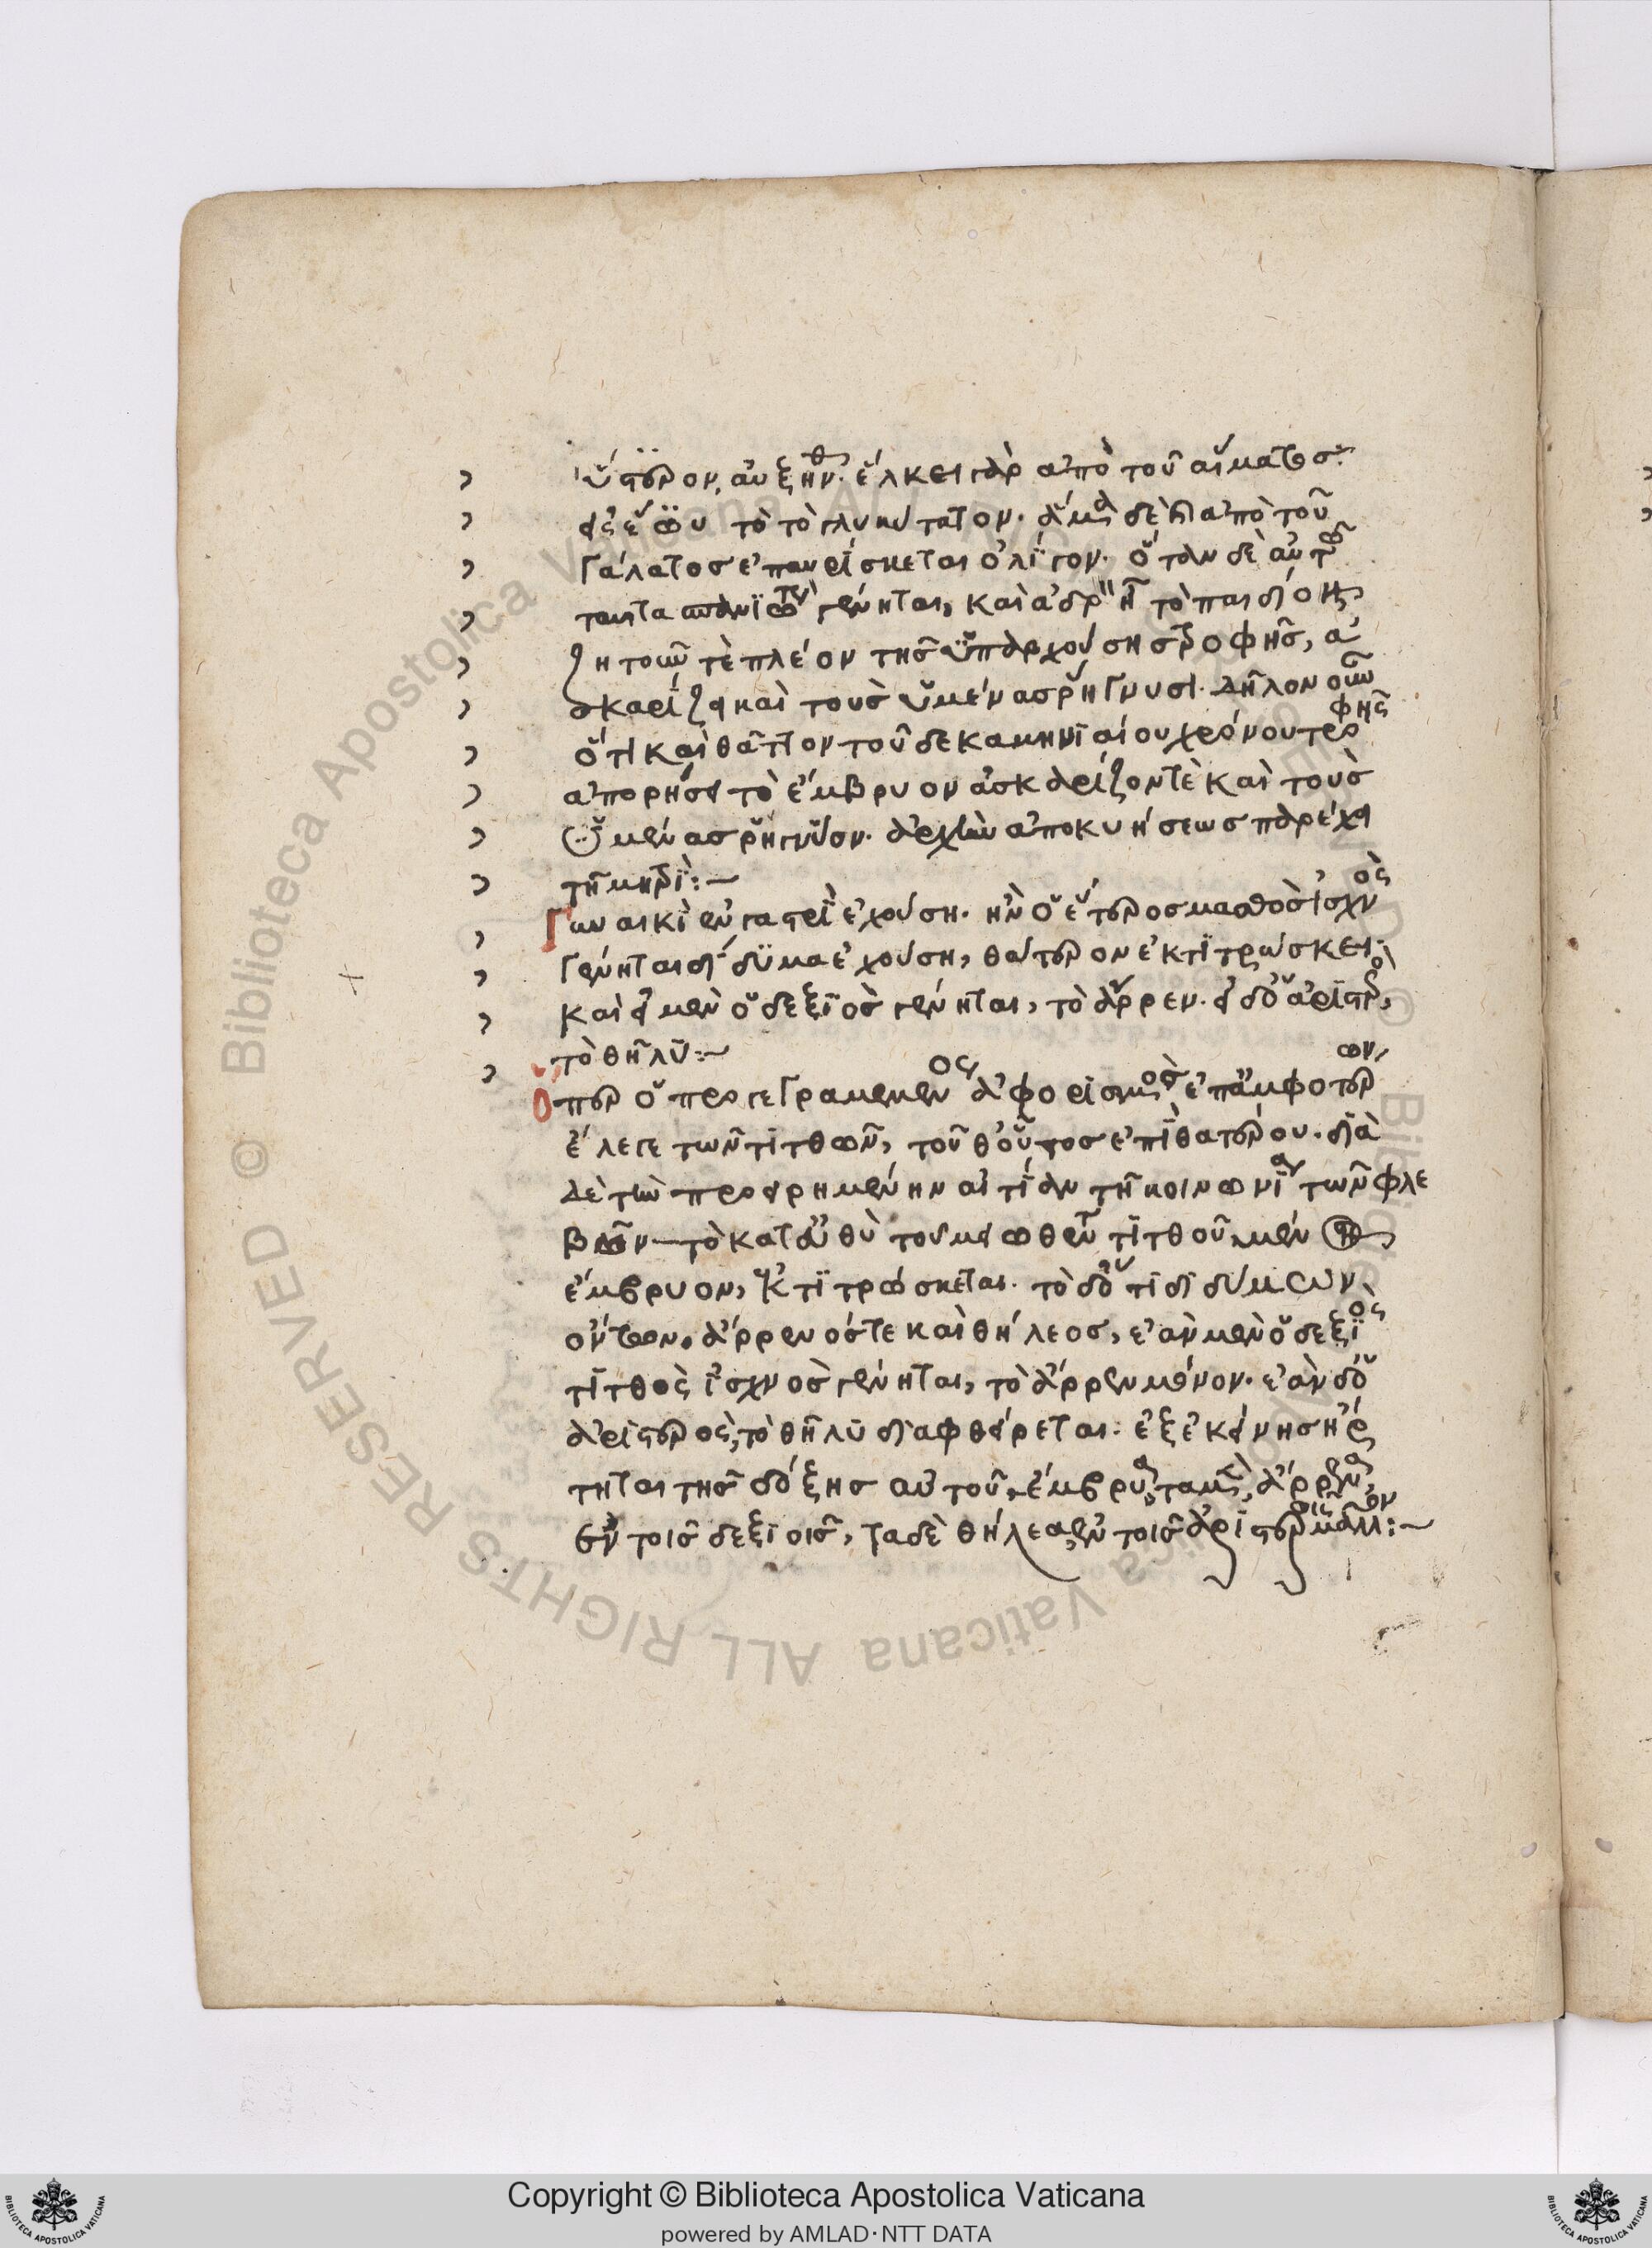 ὕστερον αὐξηθῆν. ἕλκει γὰρ ἀπὸ τοῦ αἵματος
εἰς ἑωυτὸ τὸ γλυκύτατον. ἅμα δὲ καὶ ἀπὸ τοῦ
γάλατος ἐπαυρίσκεται ὀλίγον. ὅταν δὲ αὐτῶ
ταῦτα σπανιώτερα γένηται, καὶ ἁδρὴ ἦ τὸ παιδίον
ζητοῦν τὲ πλέον τῆς ὑπαρχούσης τροφῆς, ἀ
σκαρίζει καὶ τοὺς ὑμένας ῥήγνυσι. δῆλον οὖν
ὅτι καὶ θᾶττον τοῦ δεκαμηνιαίου χρόνου τροφῆς
ἀπορῆσαι τὸ ἔμβρυον ἀσκαρίζον τὲ καὶ τοὺς
ὑμένας ῥηγνῦον. ἀρχὴν ἀποκυήσεως παρέχει
τῆ μητρί:~
Γυναικὶ ἐν γαστρὶ ἐχούση. ἢν ὁ ἕτερος μασθὸς ἰσχνὸς
γένηται δίδυμα ἐχούση, θάτερον ἐκτιτρώσκει.
καὶ εἰ μὲν ὁ δεξιὸς γένηται, τὸ ἄρρεν. εἰ δὲ ὁ ἀριστερὸς,
τὸ θῆλυ:~
Ὅπερ ὁ προγεγραμμένος ἀφορισμὸς ἐπ' ἀμφοτέρων
ἔλεγε τῶν τιτθῶν, τοῦθ' οὗτος ἐπὶ θατέρου. διὰ
δὲ τὴν προειρημένην αἰτίαν τῆ κοινωνία τῶν φλε
βῶν τὸ κατ' εὐθὺ τοῦ μειωθέντος τιτθοῦ μένον
ἔμβρυον, ἐκτιτρώσκεται. τὸ δὲ ὅτι διδύμων
ὄντων, ἄρρενός τε καὶ θήλεος, ἐὰν μὲν ὁ δεξιὸς
τιτθὸς ἰσχνὸς γένηται, τὸ ἄρρεν μόνον. ἐὰν δὲ ὁ
ἀριστερὸς, τὸ θῆλυ διαφθείρεται. ἐξ ἐκείνης ἤρ
τηται τῆς δόξης αὐτοῦ, ἔμβρυα τὰ μὲν ἄρρενα,
ἐν τοῖς δεξιοῖς, τὰ δὲ θήλεα, ἐν τοῖς ἀριστεροῖς μᾶλλον:~
Copyright © Biblioteca Apostolica Vaticana
powered by AMLAD·NTT DATA
Biblioteca Apostolica Vaticana ALL RIGHTS RESERVED ©